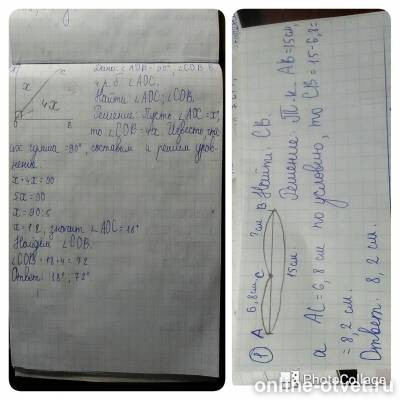 Дано: ∠ADB = 90°, ∠CDB в
4 р. б ∠ADC.
Найти: ∠ADC; ∠CDB.
Решение: Пусть ∠ADC = x°,
то ∠CDB = 4x. Известо что
их сумма = 90°, составим и решим урав-
нение.
x
4x
x+4x=90
5x=90
x=90:5
x=18, значит ∠ADC=18°
Найдем ∠CDB.
∠CDB=18•4=72
Ответ: 18°, 72°
① A 6,8см C ?см B Найти: CB.
15см
Решение: Т.к AB=15см,
а AC=6,8 см по условию, то CB=15-6,8=
=8,2 см.
Ответ: 8,2 см.
PhotoCollage
online-otvet.ru